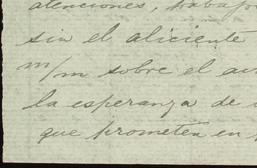 atenciones, trabajo
sin el aliciente
m/m sobre el au
la esperanza de
que prometen en